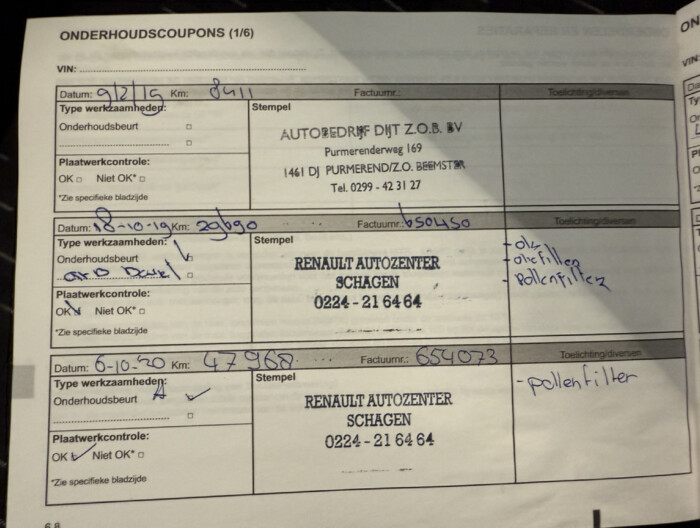 ONDERHOUDSCOUPONS (1/6)
VIN:
Datum: 9/2/15 Km: 8411 Factuurnr.: Toelichting/diversen
Type werkzaamheden:
Onderhoudsbeurt
Plaatwerkcontrole:
OK Niet OK*
*Zie specifieke bladzijde
Stempel
AUTOBEDRIJF DIJT Z.O.B. BV
Purmerenderweg 169
1461 DJ PURMEREND/Z.O. BEEMSTER
Tel. 0299 - 42 31 27
Datum: 18-10-19 Km: 29690 Factuurnr.: 650450 Toelichting/diversen
Type werkzaamheden:
Onderhoudsbeurt
Plaatwerkcontrole:
OK Niet OK*
*Zie specifieke bladzijde
Stempel
RENAULT AUTOZENTER
SCHAGEN
0224 - 21 64 64
- oliefilter
- Pollenfilter
Datum: 6-10-20 Km: 47968 Factuurnr.: 654073 Toelichting/diversen
Type werkzaamheden:
Onderhoudsbeurt A
Plaatwerkcontrole:
OK Niet OK*
*Zie specifieke bladzijde
Stempel
RENAULT AUTOZENTER
SCHAGEN
0224 - 21 64 64
- pollenfilter